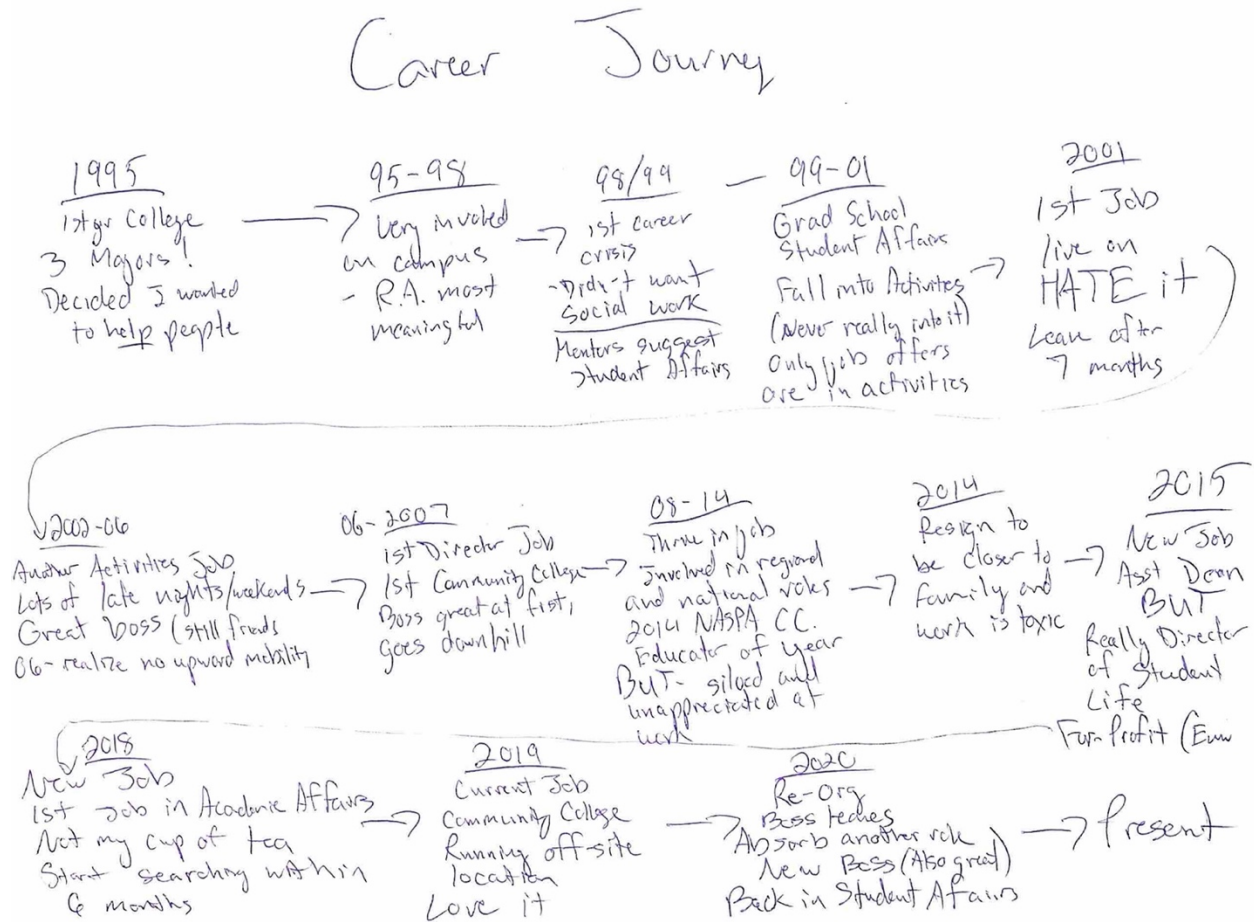 Career Journey
1995
1st yr College
3 Majors!
Decided I wanted
to help people
95-98
Very involved
on campus
- R.A. most
meaningful
98/99
1st career
crisis
- Didn't want
Social work
Mentors suggest
Student Affairs
99-01
Grad School
Student Affairs
Fall into Activites
(Never really into it)
Only job offers
are in activities
2001
1st Job
live on
HATE it
Leave after
7 months
2002-06
Another Activities Job
Lots of late nights/weekends
Great boss (still frends
06-realize no upward mobility
06-2007
1st Director Job
1st Community College
Boss great at fist,
goes downhill
08-14
Thrive in job
Involved in regional
and national roles
2014 NASPA CC.
Educator of year
BUT- siloed and
unappreciated at
work
2014
Resign to
be closer to
family and
work is toxic
2015
New Job
Asst Dean
BUT
Really Director
of Student
Life
For-Profit (Eww
2018
New Job
1st Job in Academic Affairs
Not my cup of tea
Start searching within
6 months
2019
Current Job
Community College
Running off-site
location
Love it
2020
Re-Org
Boss
Absorb another role
New Boss (Also great)
Back in Student Afairs
Present